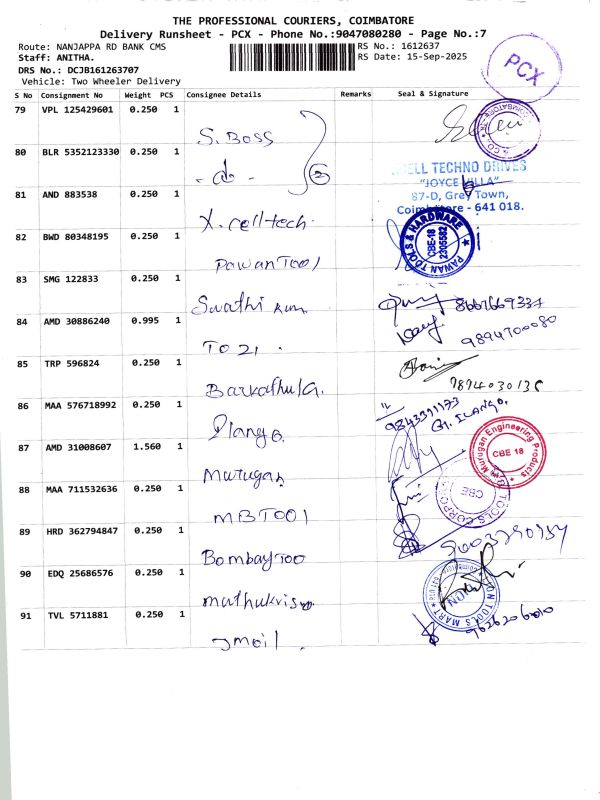 THE PROFESSIONAL COURIERS, COIMBATORE
Delivery Runsheet - PCX - Phone No.:9047080280 - Page No.:7
Route: NANJAPPA RD BANK CMS
RS No.: 1612637
Staff: ANITHA.
RS Date: 15-Sep-2025
DRS No.: DCJB161263707
Vehicle: Two Wheeler Delivery
PCX
S No Consignment No Weight PCS Consignee Details Remarks Seal & Signature
79 VPL 125429601 0.250 1
S. Boss
80 BLR 5352123330 0.250 1
- do - 2
TECHNO DRIVES
"JOYCE VILLA"
87-D, Grey Town,
Coimbatore - 641 018.
81 AND 883538 0.250 1
X. cell tech.
82 BWD 80348195 0.250 1
Pawan Tool
PAWAN TOOLS & HARDWARE
CBE-18
2305582
83 SMG 122833 0.250 1
Swathi
8667669334
84 AMD 30886240 0.995 1
TO 21.
9894700080
85 TRP 596824 0.250 1
Barkathula.
9894030135
86 MAA 576718992 0.250 1
Ilango.
9843391173
G. ILANGO.
87 AMD 31008607 1.560 1
Murugan
Murugan Engineering Products
CBE 18
88 MAA 711532636 0.250 1
MB Tool
TOOLS CORPO
CBE
89 HRD 362794847 0.250 1
Bombay Too
90 EDQ 25686576 0.250 1
muthukriso
TOOLS MART
91 TVL 5711881 0.250 1
Jmoil.
9626206010